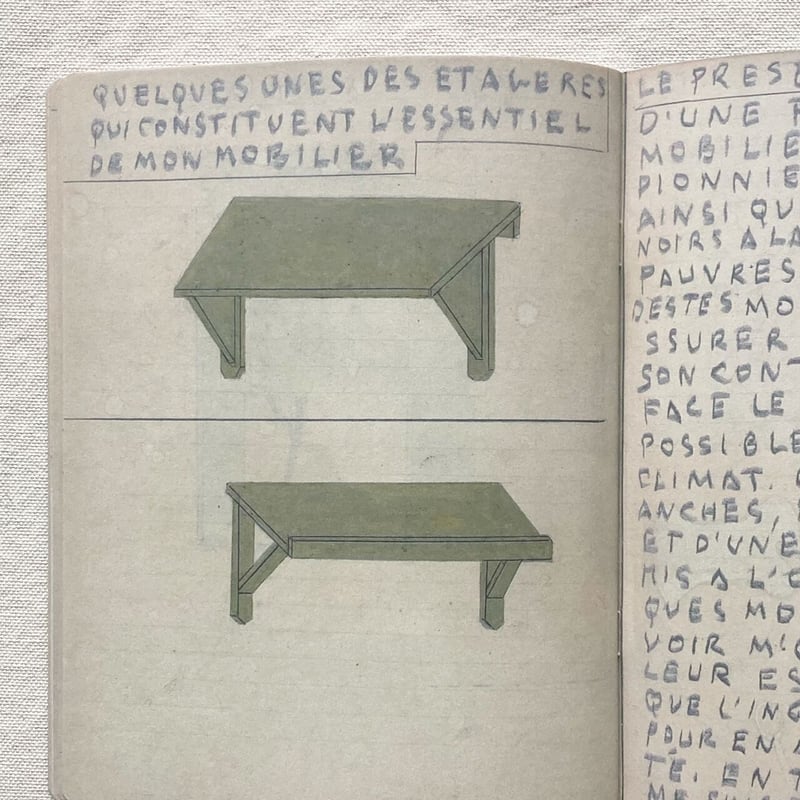 QUELQUES UNES DES ETAGERES
QUI CONSTITUENT L'ESSENTIEL
DE MON MOBILIER
LE PREST
D'UNE
MOBILIE
PIONNIE
AINSI QU
NOIRS A LA
PAUVRES
DESTES MO
SSURER
SON CONT
FACE LE
POSSIBLE
CLIMAT.
ANCHES,
ET D'UNE
MIS A L'
QUES MO
VOIR M'
LEUR ES
QUE L'ING
POUR EN A
TÉ. EN T